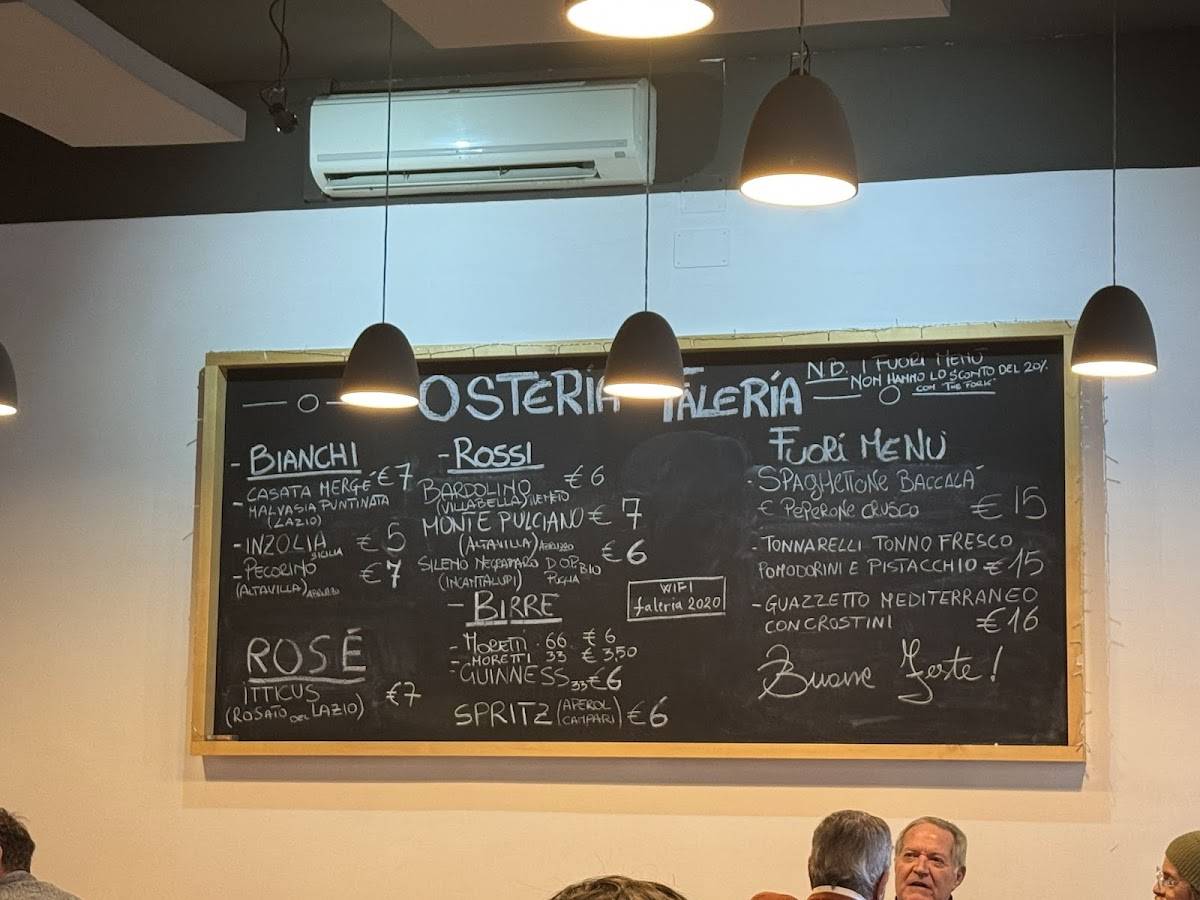 OSTERIA FALERIA
N.B. I FUORI MENÙ
NON HANNO LO SCONTO DEL 20%
CON "THE FORK"
- BIANCHI
- CASATA MERGÈ €7
MALVASIA PUNTINATA
(LAZIO)
- INZOLIA SICILIA €5
- PECORINO €7
(ALTAVILLA) ABRUZZO
ROSÉ
ITTICUS €7
(ROSATO DEL LAZIO)
- ROSSI
BARDOLINO €6
(VILLABELLA) VENETO
MONTE PULCIANO € 7
(ALTAVILLA) ABRUZZO
SILENO NEGROAMARO D.O.P. BIO €6
(INCANTALUPI) PUGLIA
WIFI
faleria 2020
- BIRRE
- MORETTI 66 € 6
- MORETTI 33 € 3,50
- GUINNESS 33 €6
SPRITZ (APEROL CAMPARI) €6
FUORI MENÙ
- SPAGHETTONE BACCALÀ
E PEPERONE CRUSCO €15
- TONNARELLI TONNO FRESCO
POMODORINI E PISTACCHIO €15
- GUAZZETTO MEDITERRANEO
CON CROSTINI €16
Buone Feste!